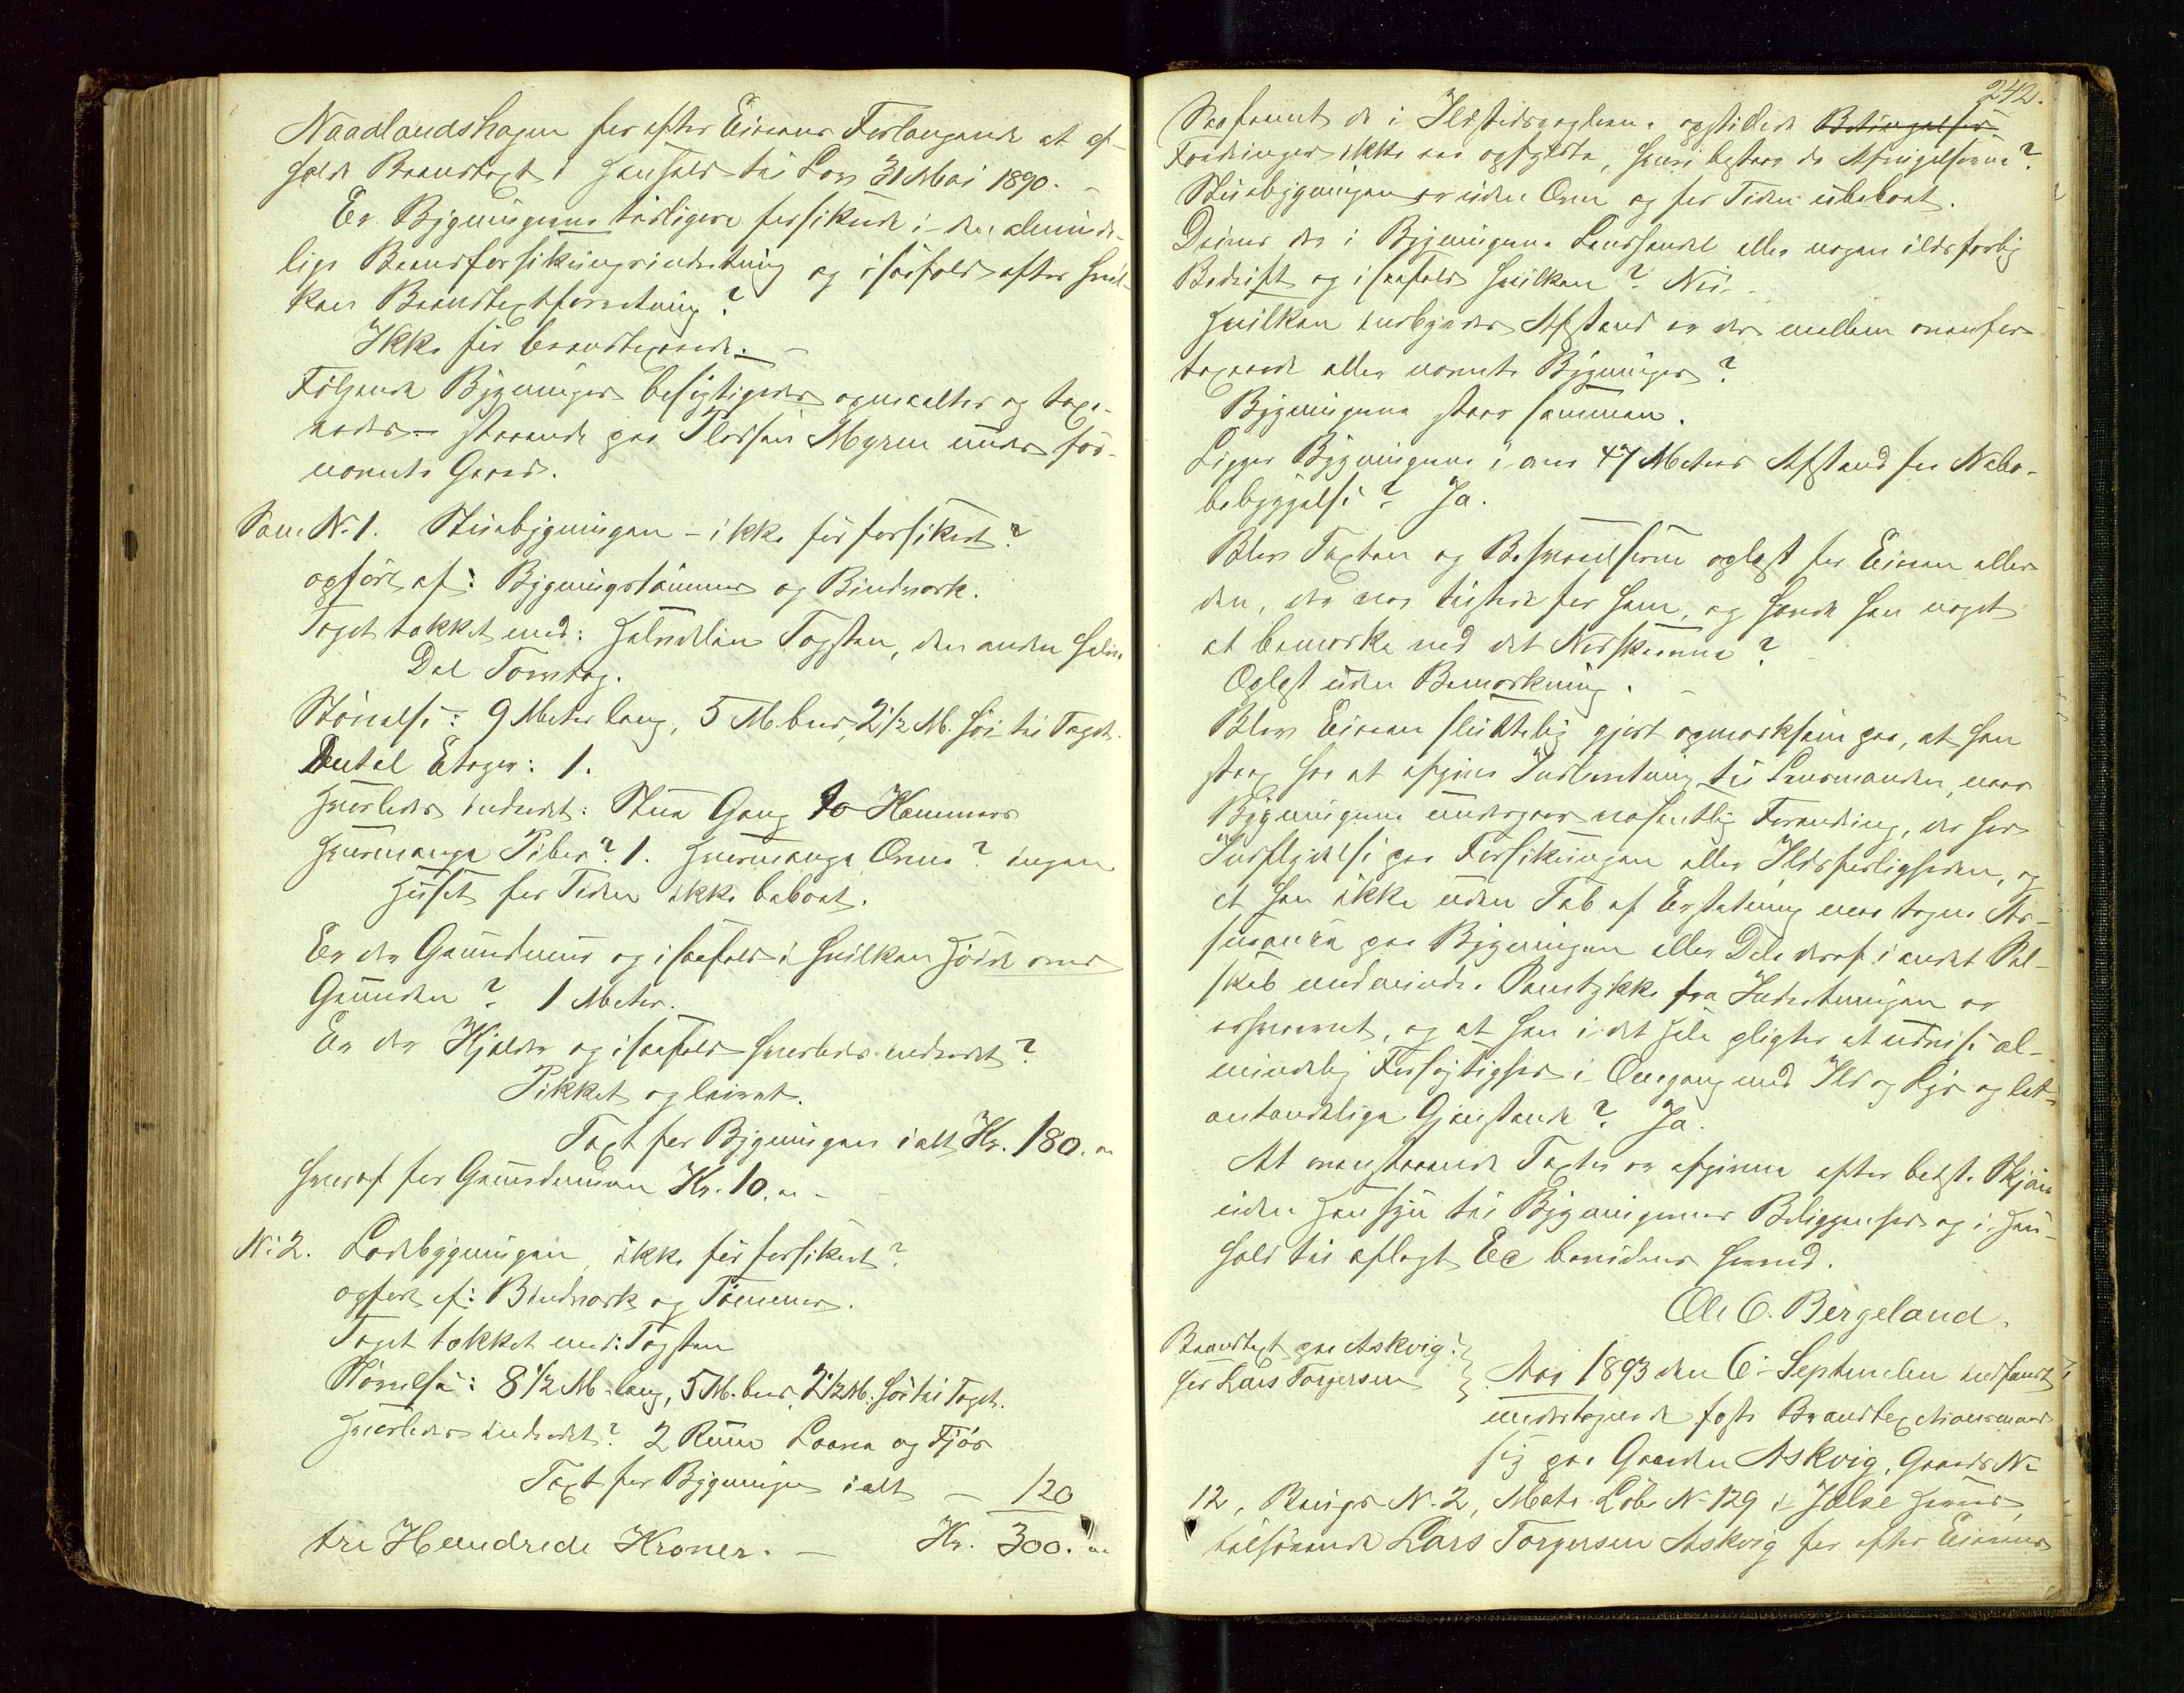 Naadlandshagen for efter Eierens Forlangende at af-
holde Brandtaxt i Henhold til Lov 31 Mai 1890. –
Er Bygningerne tidligere forsikrede i den alminde-
lige Brandforsikringsindretning og i saafald efter hvil-
ken Brandtaxtforretning?
Ikke før brandtaxerede. –
Følgende Bygninger besigtigedes opmaaltes og taxe-
redes – staaende paa Pladsen Myren under før-
nævnte Gaard.
Som No 1. Stuebygningen – ikke før forsikret?
opført af: Bygningstømmer og Bindværk.
Taget tækket med: Halvdelen Tagsten, den anden halve
Del Torvtag.
Størrelse: 9 Meter lang, 5 M. bred, 2½ M. høi til Taget.
Antal Etager: 1.
Hvorledes indredet: Stue Gang to Kammers
Hvormange Piber? 1. Hvormange Ovne? ingen
Huset for Tiden ikke beboet.
Er der Grundmur og i saafald i hvilken Høide over
Grunden? 1 Meter.
Er der Kjælder og i saafald hvorledes indredet?
Pikket og leiret.
Taxt for Bygningen ialt Kr. 180. "
hvoraf for Grundmuren Kr. 10. " –
No 2. Ladebygningen, ikke før forsikret?
opført af: Bindværk og Tømmer.
Taget tækket med: Tagsten
Størrelse: 8½ M. lang, 5 M. bred, 2½ M. høi til Taget.
Hvorledes indredet? 2 Rum Laave og Fjøs
Taxt for Bygningen ialt – 120
tre Hundrede Kroner. – Kr. 300. "
242.
Saafremt de i Ildstedsreglerne opstillede Betingelser
Fordringer ikke ere opfyldte, hvori bestaar da Afvigelserne?
Stuebygningen er uden Ovn og for Tiden ubeboet.
Drives der i Bygningerne Landhandel eller nogen ildsfarlig
Bedrift og i saafald hvilken? Nei.
Hvilken indbyrdes Afstand er der mellem ovenfor
taxerede eller nævnte Bygninger?
Bygningerne staar sammen.
Ligger Bygningerne i over 47 Meters Afstand fra Nabo-
bebyggelse? Ja.
Blev Taxten og Besvarelserne oplæst for Eieren eller
den, der var tilstede for ham, og havde han noget
at bemærke ved det Nedskrevne?
Oplæst uden Bemærkning. –
Blev Eieren sluttelig gjort opmærksom paa, at han
strax har at afgive Indberetning til Lensmanden, naar
Bygningerne undergaar væsentlig Forandring, der har
Indflydelse paa Forsikringen eller Ildsfarligheden, og
at han ikke uden Tab af Erstatning maa tegne As-
surance paa Bygningen eller Dele deraf i andet Sel-
skab medmindre Samtykke fra Indretningen er
erhvervet, og at han i det Hele pligter at udvise al-
mindelig Forsigtighed i Omgang med Ild og Lys og let-
antændelige Gjenstande? Ja.
At ovenstaaende Taxter er afgivne efter bedste Skjøn
uden Hensyn til Bygningernes Beliggenhed og i Hen-
hold til aflagt Ed bevidnes herved.
Ole O. Bergeland.
Brandtaxt paa Askvig
hos Lars Torgersen
Aar 1893 den 6. September indfandt
undertegnede faste Brandtaxationsmænd
sig paa Gaarden Askvig, Gaards No
12, Brugs No 2, Matr. Løbe No 129 i Jelse Herred,
tilhørende Lars Torgersen Askvig for efter Eierens